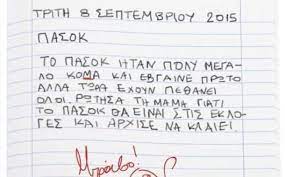 ΤΡΙΤΗ 8 ΣΕΠΤΕΜΒΡΙΟΥ 2015
ΠΑΣΟΚ
ΤΟ ΠΑΣΟΚ ΗΤΑΝ ΠΟΛΥ ΜΕΓΑ-
ΛΟ ΚΟΜΑ ΚΑΙ ΕΒΓΑΙΝΕ ΠΡΩΤΟ
ΑΛΛΑ ΤΩΡΑ ΕΧΟΥΝ ΠΕΘΑΝΕΙ
ΟΛΟΙ. ΡΩΤΗΣΑ ΤΗ ΜΑΜΑ ΓΙΑΤΙ
ΤΟ ΠΑΣΟΚ ΘΑ ΕΙΝΑΙ ΣΤΙΣ ΕΚΛΟ-
ΓΕΣ ΚΑΙ ΑΡΧΙΣΕ ΝΑ ΚΛΑΙΕΙ
Μπράβο!